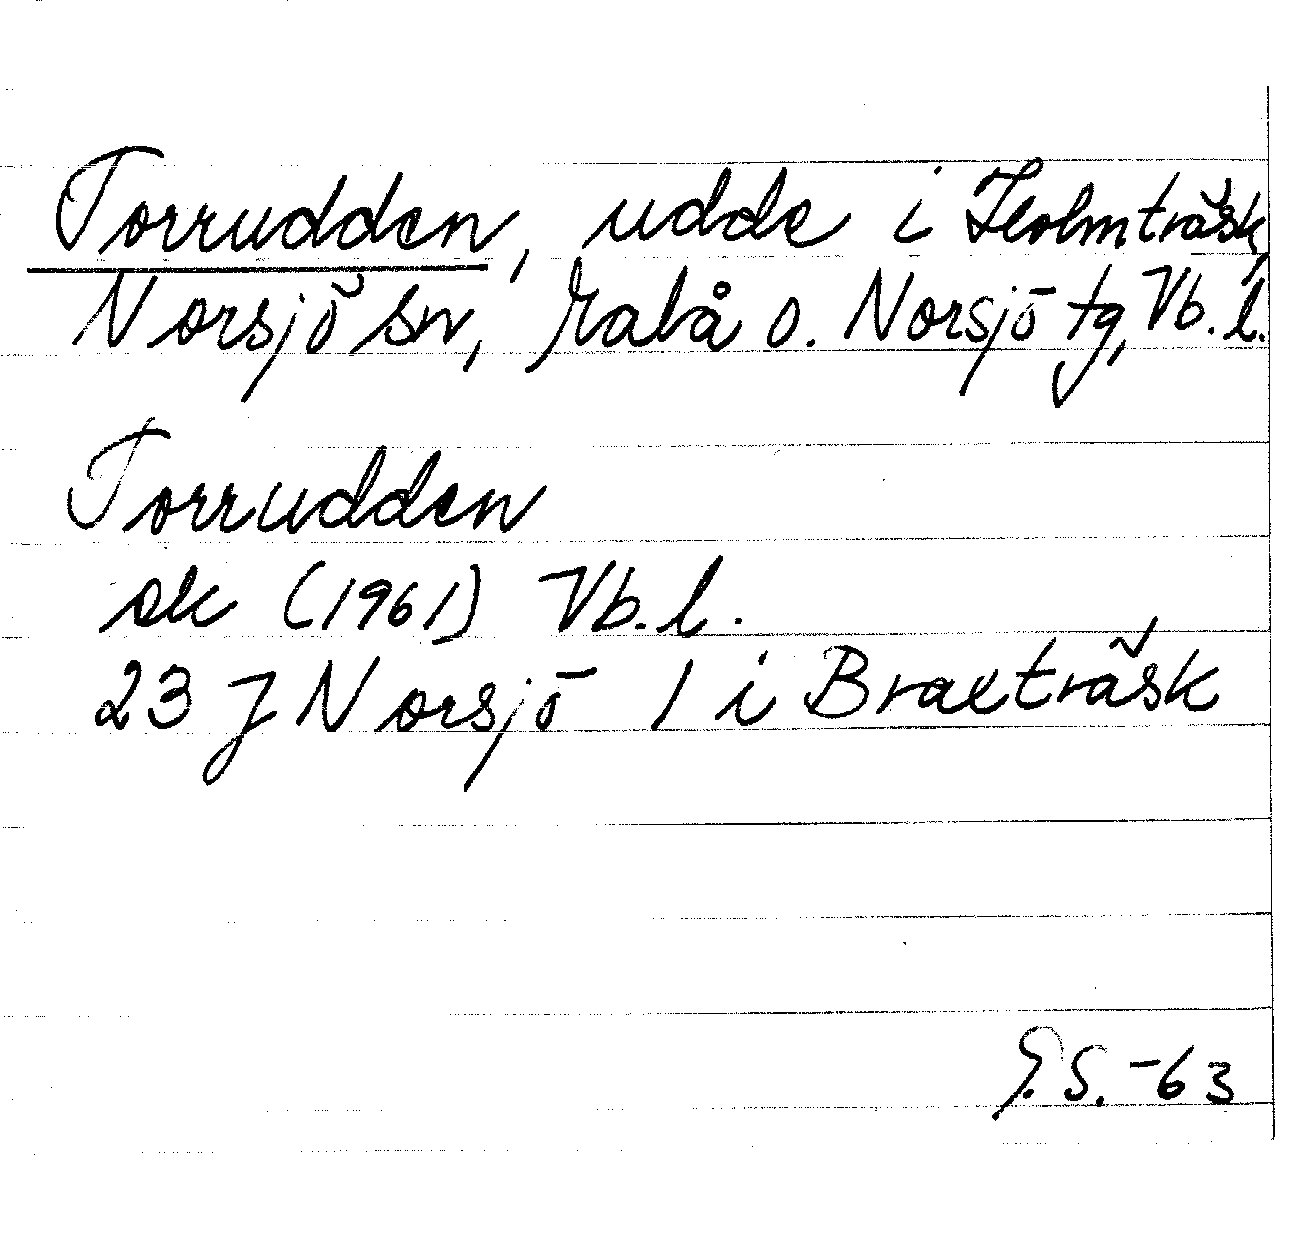 Torrudden, udde i Holmträsk,
Norsjö sn, Malå o. Norsjö tg, Vb. l.
Torrudden
ek (1961) Vb. l.
23 J Norsjö 1 i Braxträsk
G.S. -63